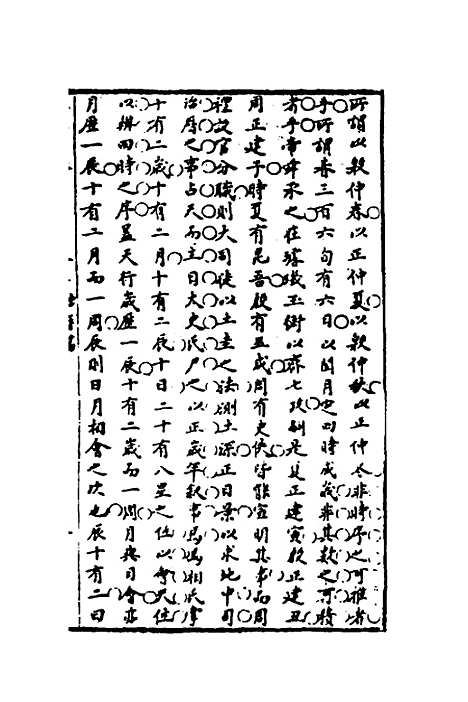 所謂以殷仲春以正仲夏以殷仲秋以正仲冬非時序之可推者
乎所謂春三百六旬有六日以閏月定四時成歲非其數之可積
者乎帝舜承之在璿璣玉衡以齊七政嗣是夏正建寅殷正建丑
周正建子時夏有昆吾殷有巫咸周有史佚皆能宣明其事而周
禮設官分職則大司徒以土圭之法測土深正日景以求地中司
治曆之事占天而主日太史氏尸之以正歲年叙事馮相氏掌
十有二歲十有二月十有二辰十日二十有八星之位以會天位
以辨四時之序蓋天行歲歷一辰十有二歲而一周月與日會亦
月歷一辰十有二月而一周辰則日月相會之次也辰十有二曰